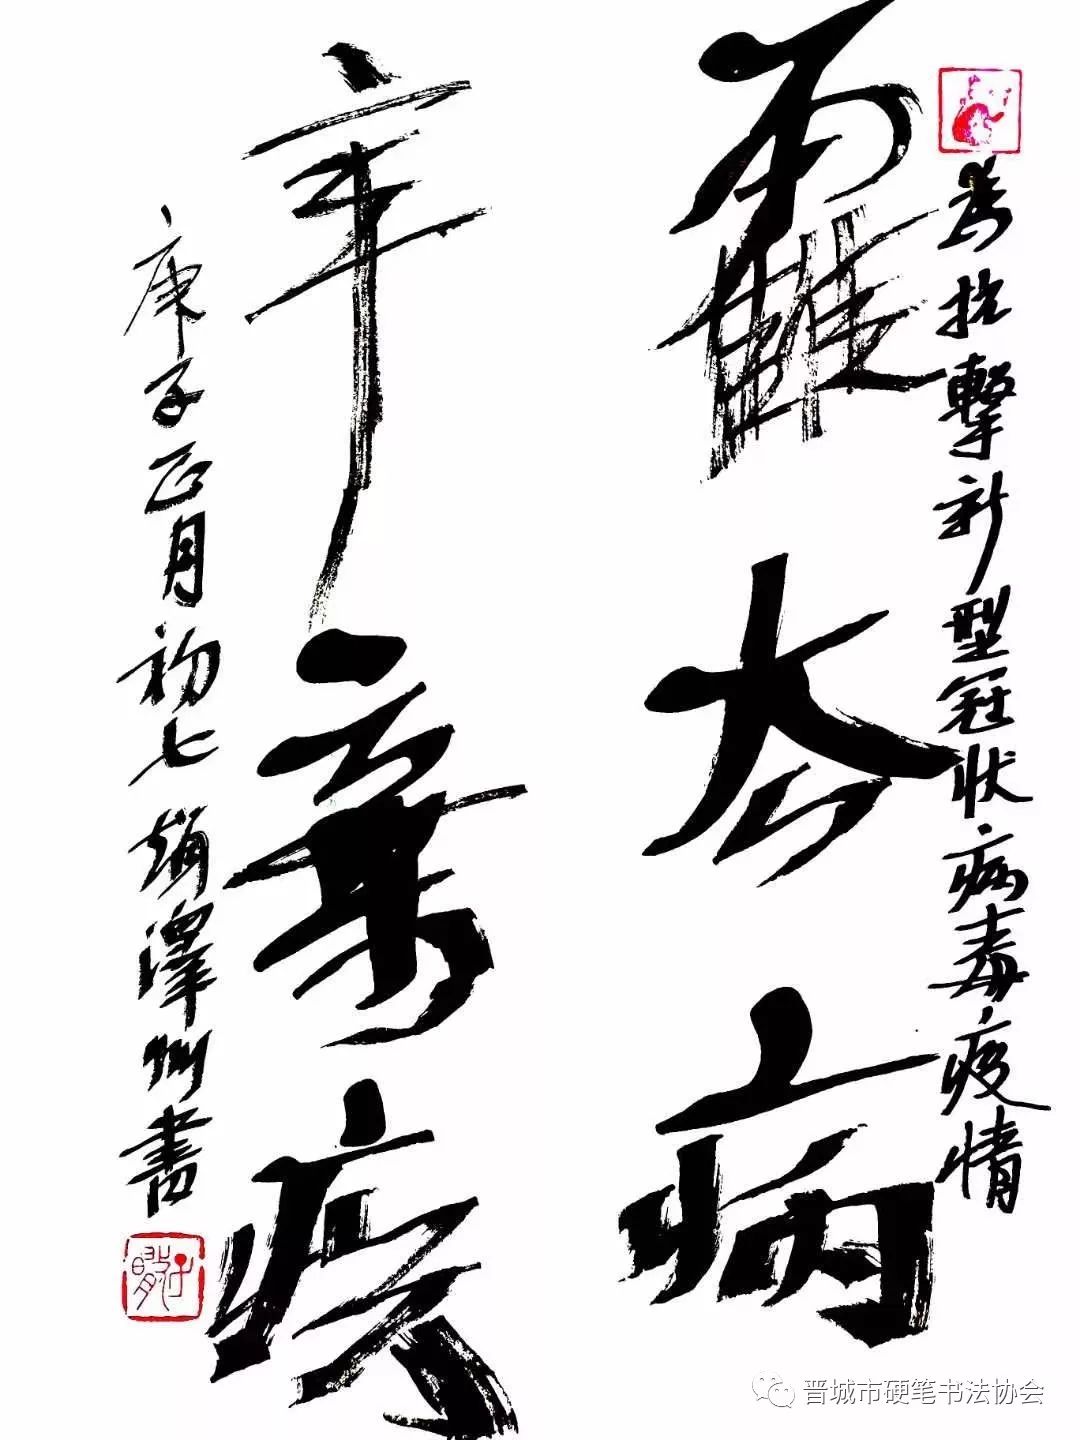 為抗擊新型冠状病毒疫情
霍去病
辛棄疾
庚子正月初七趙澤州書
晋城市硬笔书法协会